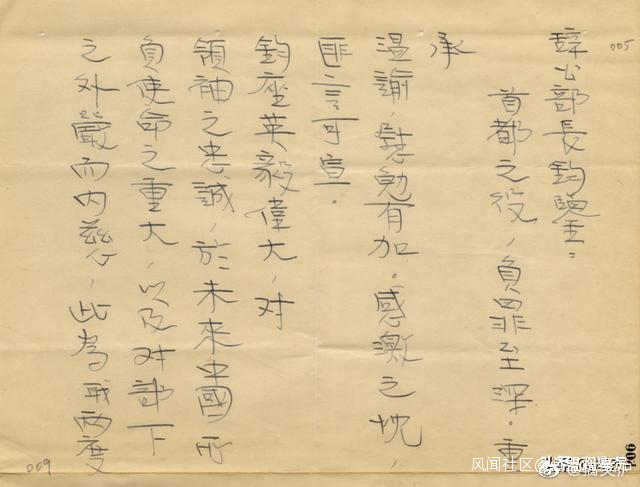 005
辞公部長鈞鑒：
首都之役，負罪至深。重
承
温諭，慰勉有加。感激之忱，
匪言可宣。
鈞座英毅偉大，对
領袖之忠誠，於未來中國所
負使命之重大，以及对部下
之外嚴而内慈，此為職兩度
009
风闻社区